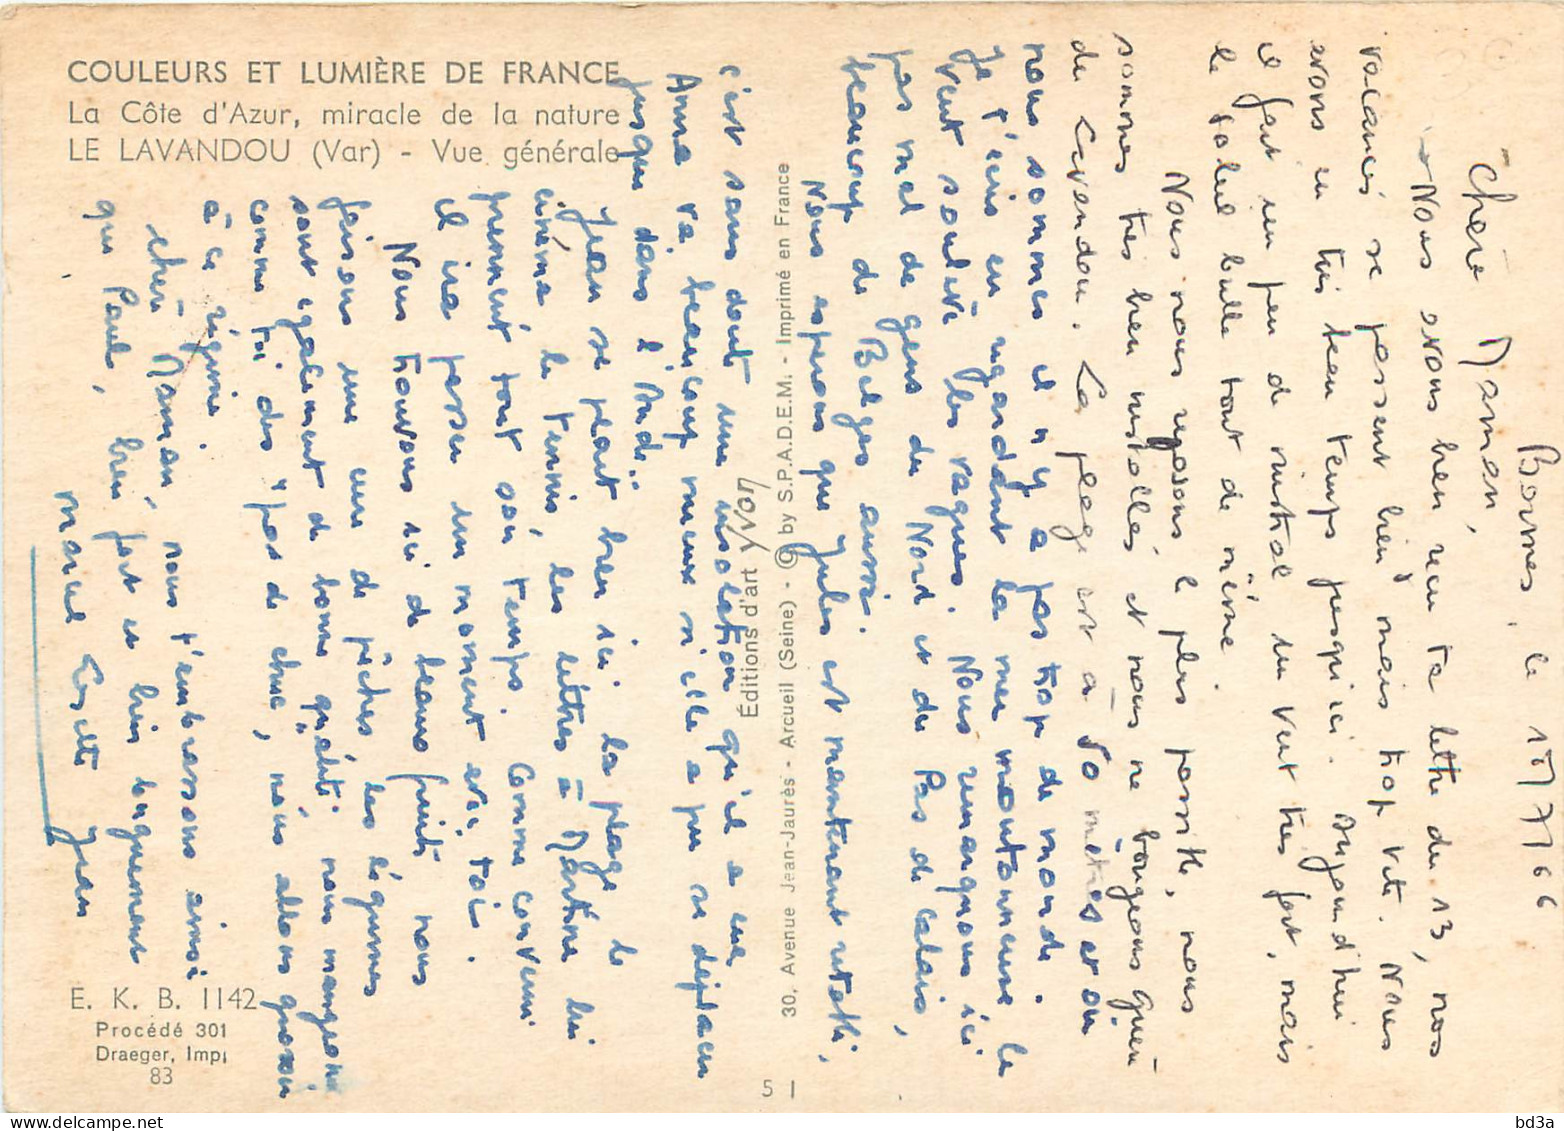 COULEURS ET LUMIÈRE DE FRANCE
La Côte d'Azur, miracle de la nature
LE LAVANDOU (Var) - Vue générale
Bormes, le 18/7/66
Chère Maman,
Nous avons bien reçu ta lettre du 13, nos
vacances se passent bien mais trop vite. Nous
avons eu très beau temps jusqu'ici. Aujourd'hui
il fait un peu de mistral un vent très fort, mais
le soleil brille tout de même.
Nous nous reposons le plus possible, nous
sommes très bien installés et nous ne bougeons guère
du Lavandou. La plage est à 50 mètres et où
nous sommes il n'y a pas trop de monde.
Je t'écris en regardant la mer moutonneuse le
vent soulève les vagues. Nous remarquons ici
pas mal de gens du Nord et du Pas de Calais,
beaucoup de Belges aussi.
Nous espérons que Jules est maintenant rétabli,
c'est sans doute une insolation qu'il a eue
Anna va beaucoup mieux si elle a pu se déplacer
jusque dans l'Aude.
Jean se plaît bien ici la plage le
cinéma le tennis, les lettres à Martine lui
prennent tout son temps. Comme convenu
il ira passer un moment avec toi.
Nous trouvons ici de beaux fruits, nous
faisons une cure de pêches, les légumes
sont également de bonne qualité nous mangeons
comme toi des "pas de chose, nous allons grossir
à ce régime.
Chère Maman, nous t'embrassons ainsi
que Paul, bien fort et bien longuement
Marcel Jean
Éditions d'art YVON
30, Avenue Jean-Jaurès - Arcueil (Seine) - © by S.P.A.D.E.M. - Imprimé en France
E. K. B. 1142
Procédé 301
Draeger, Imp.
83
5 1
bd3a